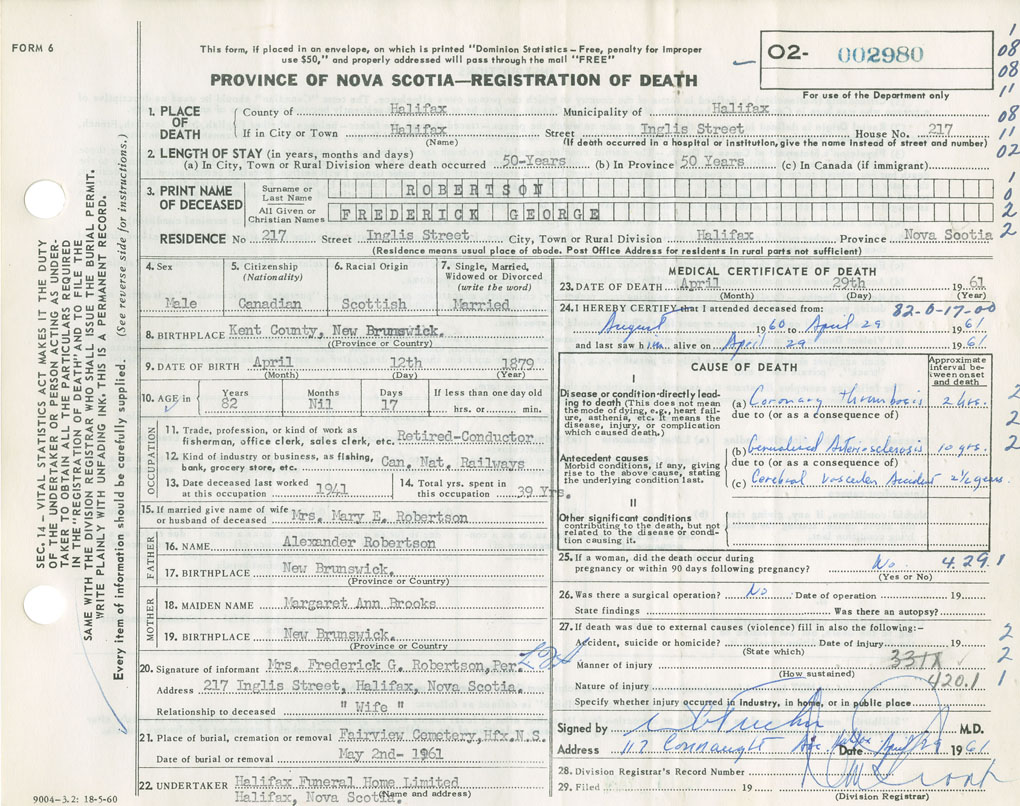 FORM 6
This form, if placed in an envelope, on which is printed "Dominion Statistics – Free, penalty for improper
use $50," and properly addressed will pass through the mail "FREE"
PROVINCE OF NOVA SCOTIA—REGISTRATION OF DEATH
O2- 002980
For use of the Department only
1. PLACE OF DEATH
County of Halifax Municipality of Halifax
If in City or Town Halifax Street Inglis Street House No. 217
(Name) (If death occurred in a hospital or institution, give the name instead of street and number)
2. LENGTH OF STAY (in years, months and days)
(a) In City, Town or Rural Division where death occurred 50-Years (b) In Province 50 Years (c) In Canada (if immigrant)
3. PRINT NAME OF DECEASED
Surname or Last Name ROBERTSON
All Given or Christian Names FREDERICK GEORGE
RESIDENCE No 217 Street Inglis Street City, Town or Rural Division Halifax Province Nova Scotia
(Residence means usual place of abode. Post Office Address for residents in rural parts not sufficient)
4. Sex
Male
5. Citizenship
(Nationality)
Canadian
6. Racial Origin
Scottish
7. Single, Married,
Widowed or Divorced
(write the word)
Married
8. BIRTHPLACE Kent County, New Brunswick.
((Province or Country)
9. DATE OF BIRTH April 12th 1879
(Month) (Day) (Year)
10. AGE in
Years Months Days If less than one day old
82 Nil 17 hrs. or min.
OCCUPATION
11. Trade, profession, or kind of work as
fisherman, office clerk, sales clerk, etc. Retired-Conductor
12. Kind of industry or business, as fishing,
bank, grocery store, etc. Can. Nat. Railways
13. Date deceased last worked
at this occupation 1941
14. Total yrs. spent in
this occupation 39 Yrs.
15. If married give name of wife
or husband of deceased Mrs. Mary E. Robertson
FATHER
16. NAME Alexander Robertson
17. BIRTHPLACE New Brunswick.
(Province or Country)
MOTHER
18. MAIDEN NAME Margaret Ann Brooks
19. BIRTHPLACE New Brunswick.
(Province or Country
20. Signature of informant Mrs. Frederick G. Robertson, Per.
Address 217 Inglis Street, Halifax, Nova Scotia.
Relationship to deceased " Wife "
21. Place of burial, cremation or removal Fairview Cemetery, Hfx. N.S.
Date of burial or removal May 2nd- 1961
22. UNDERTAKER Halifax Funeral Home Limited
Halifax, Nova Scotia.
(Name and address)
9004-3.2: 18-5-60
MEDICAL CERTIFICATE OF DEATH
23. DATE OF DEATH April 29th 1961
(Month) (Day) (Year)
24. I HEREBY CERTIFY that I attended deceased from: 82-0-17-00
August 1960 to April 29 1961
and last saw him alive on April 29 1961
CAUSE OF DEATH
Approximate interval between onset and death
I
Disease or condition directly leading to death (This does not mean the mode of dying, e.g., heart failure, asthenia, etc. It means the disease, injury, or complication which caused death.)
(a) Coronary thrombosis 2 hrs.
due to (or as a consequence of)
Antecedent causes
Morbid conditions, if any, giving rise to the above cause, stating the underlying condition last.
(b) Generalized Arteriosclerosis 10 yrs.
due to (or as a consequence of)
(c) Cerebral vascular Accident 2 1/2 years
II
Other significant conditions
contributing to the death, but not related to the disease or condition causing it.
25. If a woman, did the death occur during
pregnancy or within 90 days following pregnancy? No 4.29.1
(Yes or No)
26. Was there a surgical operation? No Date of operation 19
State findings Was there an autopsy?
27. If death was due to external causes (violence) fill in also the following:-
Accident, suicide or homicide? Date of injury 19
(State which)
Manner of injury 331X
(How sustained)
Nature of injury 420.1
Specify whether injury occurred in industry, in home, or in public place
Signed by M.D.
Address 117 Connaught Ave Date April 29 1961
28. Division Registrar's Record Number
29. Filed 19
(Division Registrar)
SEC. 14 – VITAL STATISTICS ACT MAKES IT THE DUTY
OF THE UNDERTAKER OR PERSON ACTING AS UNDER-
TAKER TO OBTAIN ALL THE PARTICULARS REQUIRED
IN THE "REGISTRATION OF DEATH" AND TO FILE THE
SAME WITH THE DIVISION REGISTRAR WHO SHALL ISSUE THE BURIAL PERMIT.
WRITE PLAINLY WITH UNFADING INK. THIS IS A PERMANENT RECORD.
Every item of information should be carefully supplied. (See reverse side for instructions.)
1
08
08
11
08
11
02
1
0
2
2
2
2
2
1
2
2
1